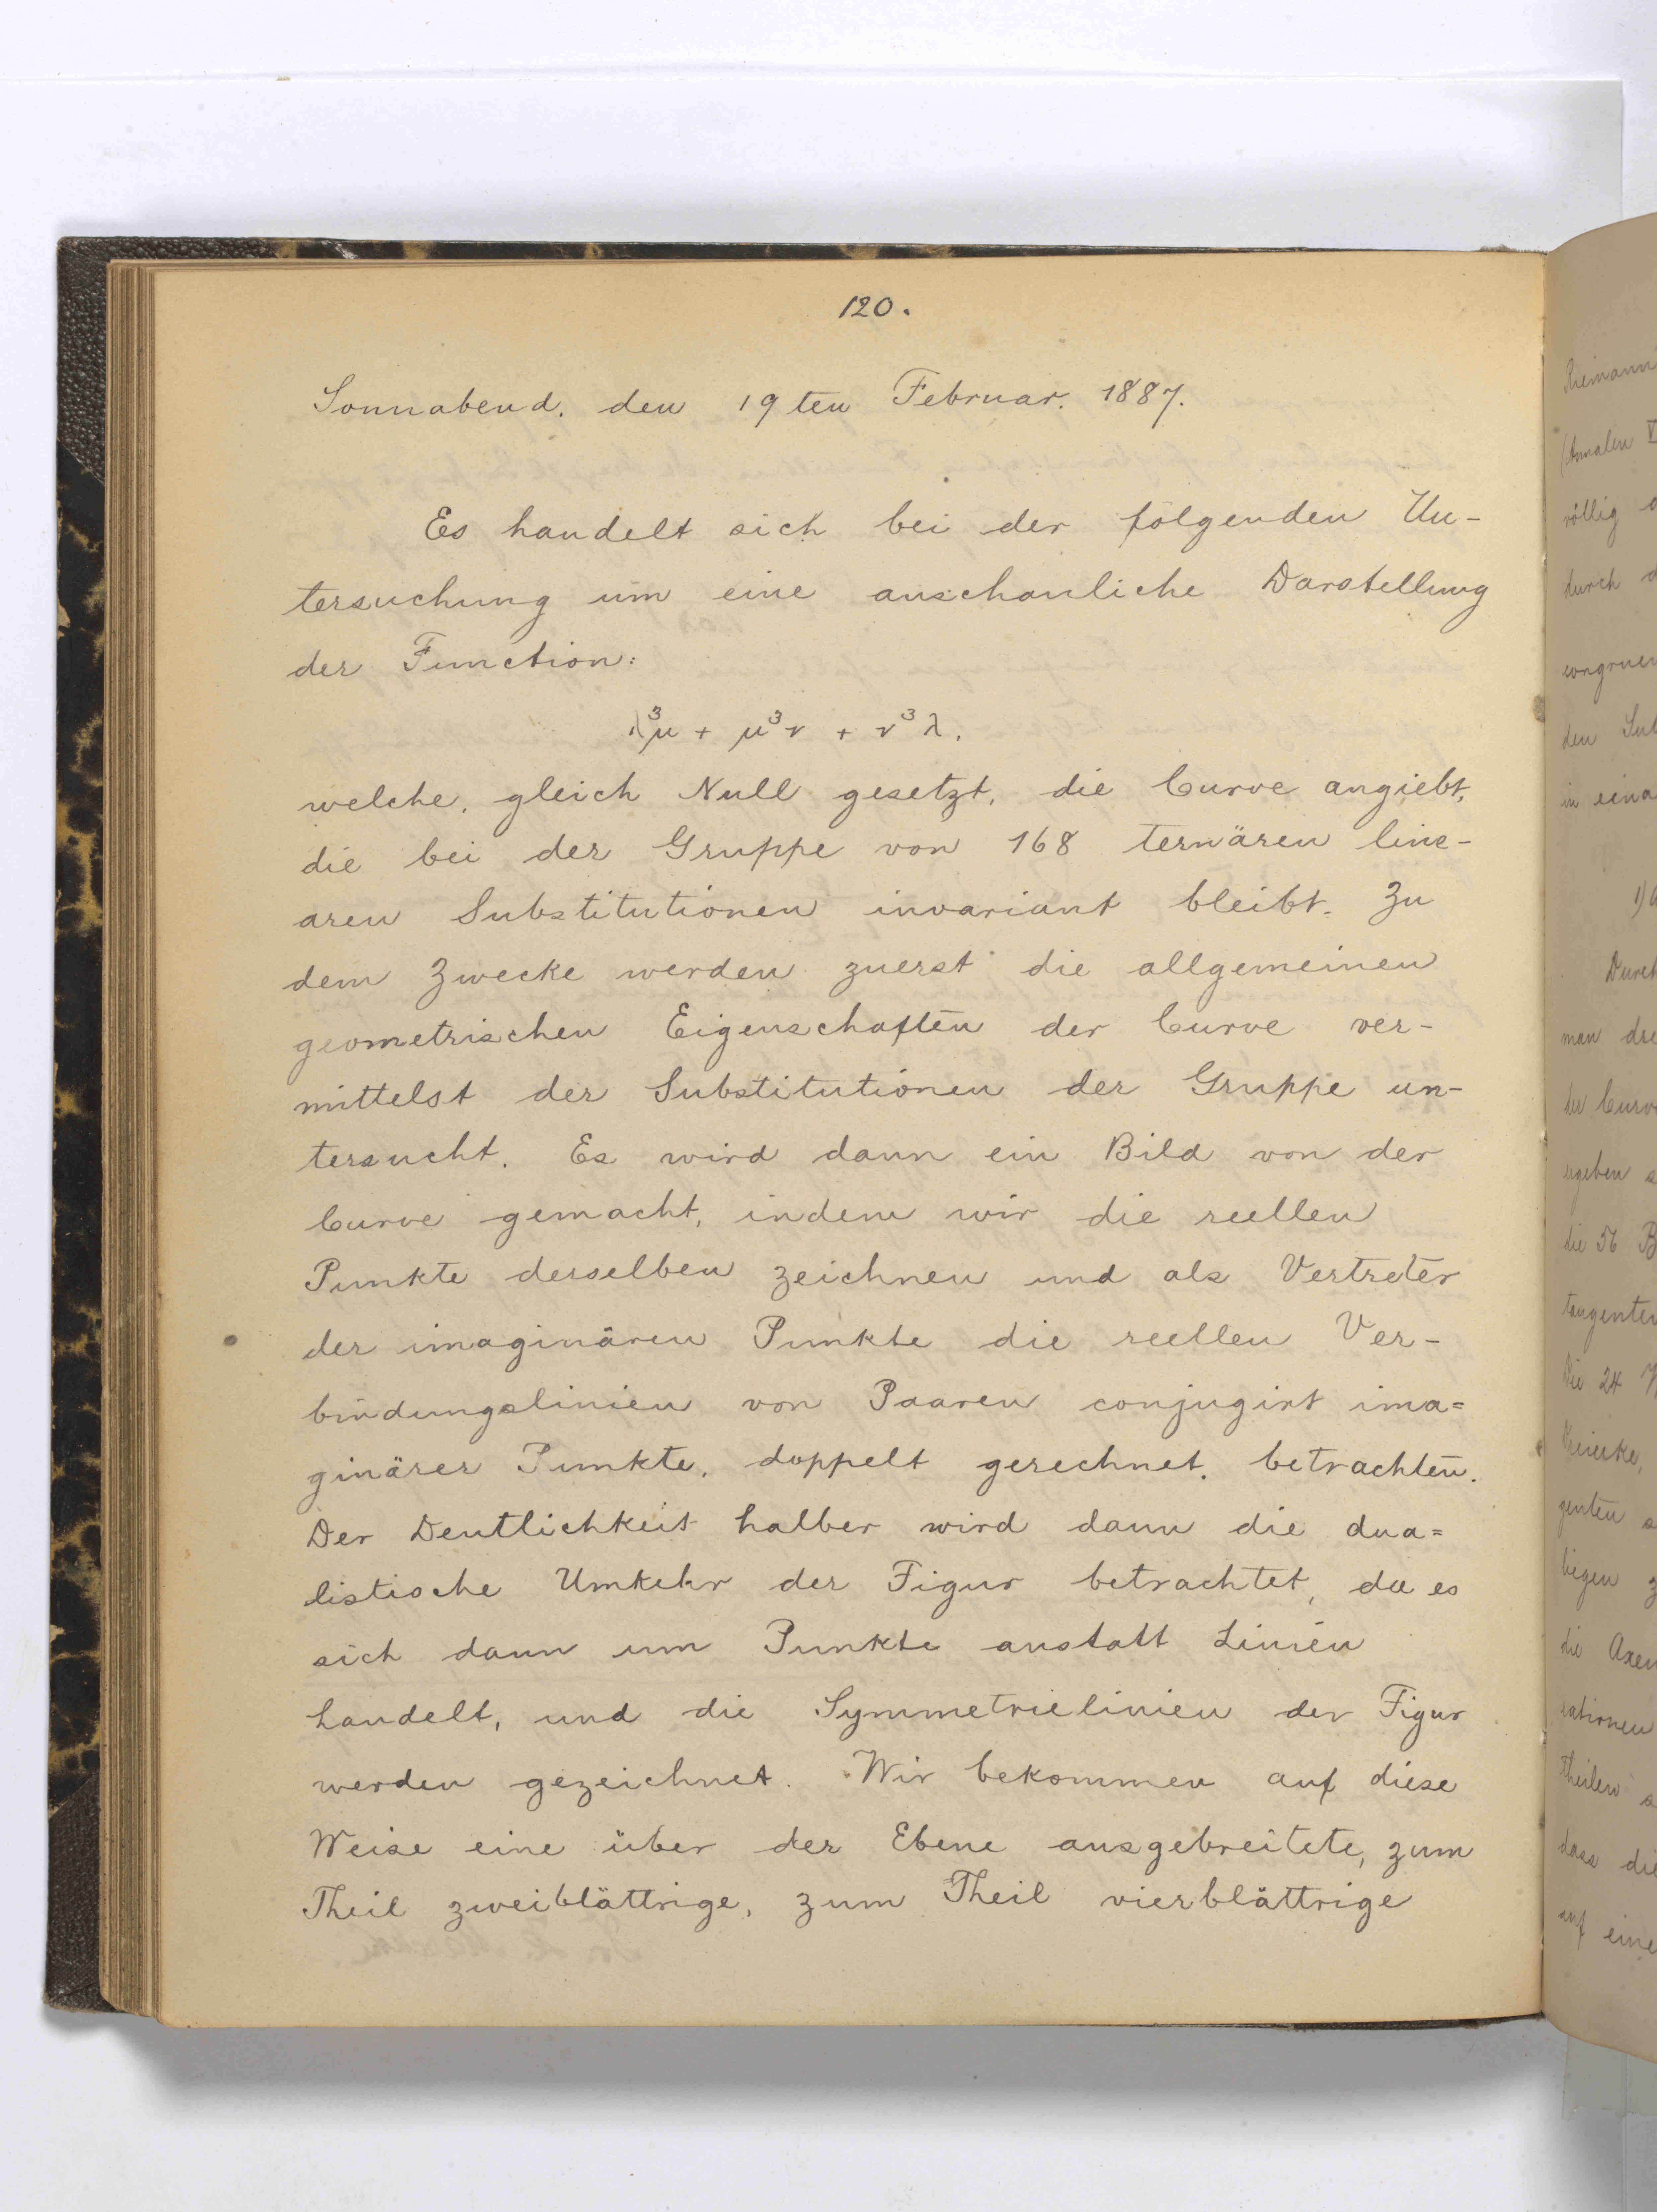 120.
Sonnabend, den 19ten Februar. 1887.
Es handelt sich bei der folgenden Un-
tersuchung um eine anschauliche Darstellung
der Function:
λ³μ + μ³ν + ν³λ,
welche, gleich Null gesetzt, die Curve angiebt,
die bei der Gruppe von 168 ternären line-
aren Substitutionen invariant bleibt. Zu
dem Zwecke werden zuerst die allgemeinen
geometrischen Eigenschaften der Curve ver-
mittelst der Substitutionen der Gruppe un-
tersucht. Es wird dann ein Bild von der
Curve gemacht, indem wir die reellen
Punkte derselben zeichnen und als Vertreter
der imaginären Punkte die reellen Ver-
bindungslinien von Paaren conjugirt ima=
ginärer Punkte, doppelt gerechnet, betrachten.
Der Deutlichkeit halber wird dann die dua=
listische Umkehr der Figur betrachtet, da es
sich dann um Punkte anstatt Linien
handelt, und die Symmetrielinien der Figur
werden gezeichnet. Wir bekommen auf diese
Weise eine über der Ebene ausgebreitete, zum
Theil zweiblättrige, zum Theil vierblättrige
Riemann
(Annalen
völlig
durch
den
in
1)
Durch
man
der Curve
die 56 B
die 24
die Axen
Theilen
dass die
auf eine